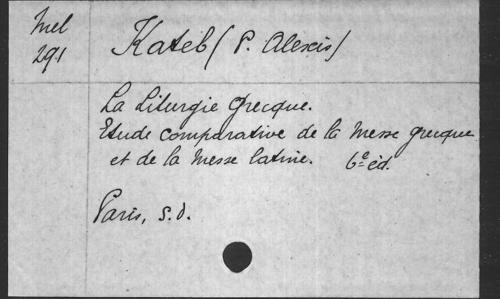 Mel
291
Kateb (P. Alexis)
La Liturgie grecque.
Etude comparative de la messe grecque
et de la messe latine. 6e éd.
Paris, s.d.